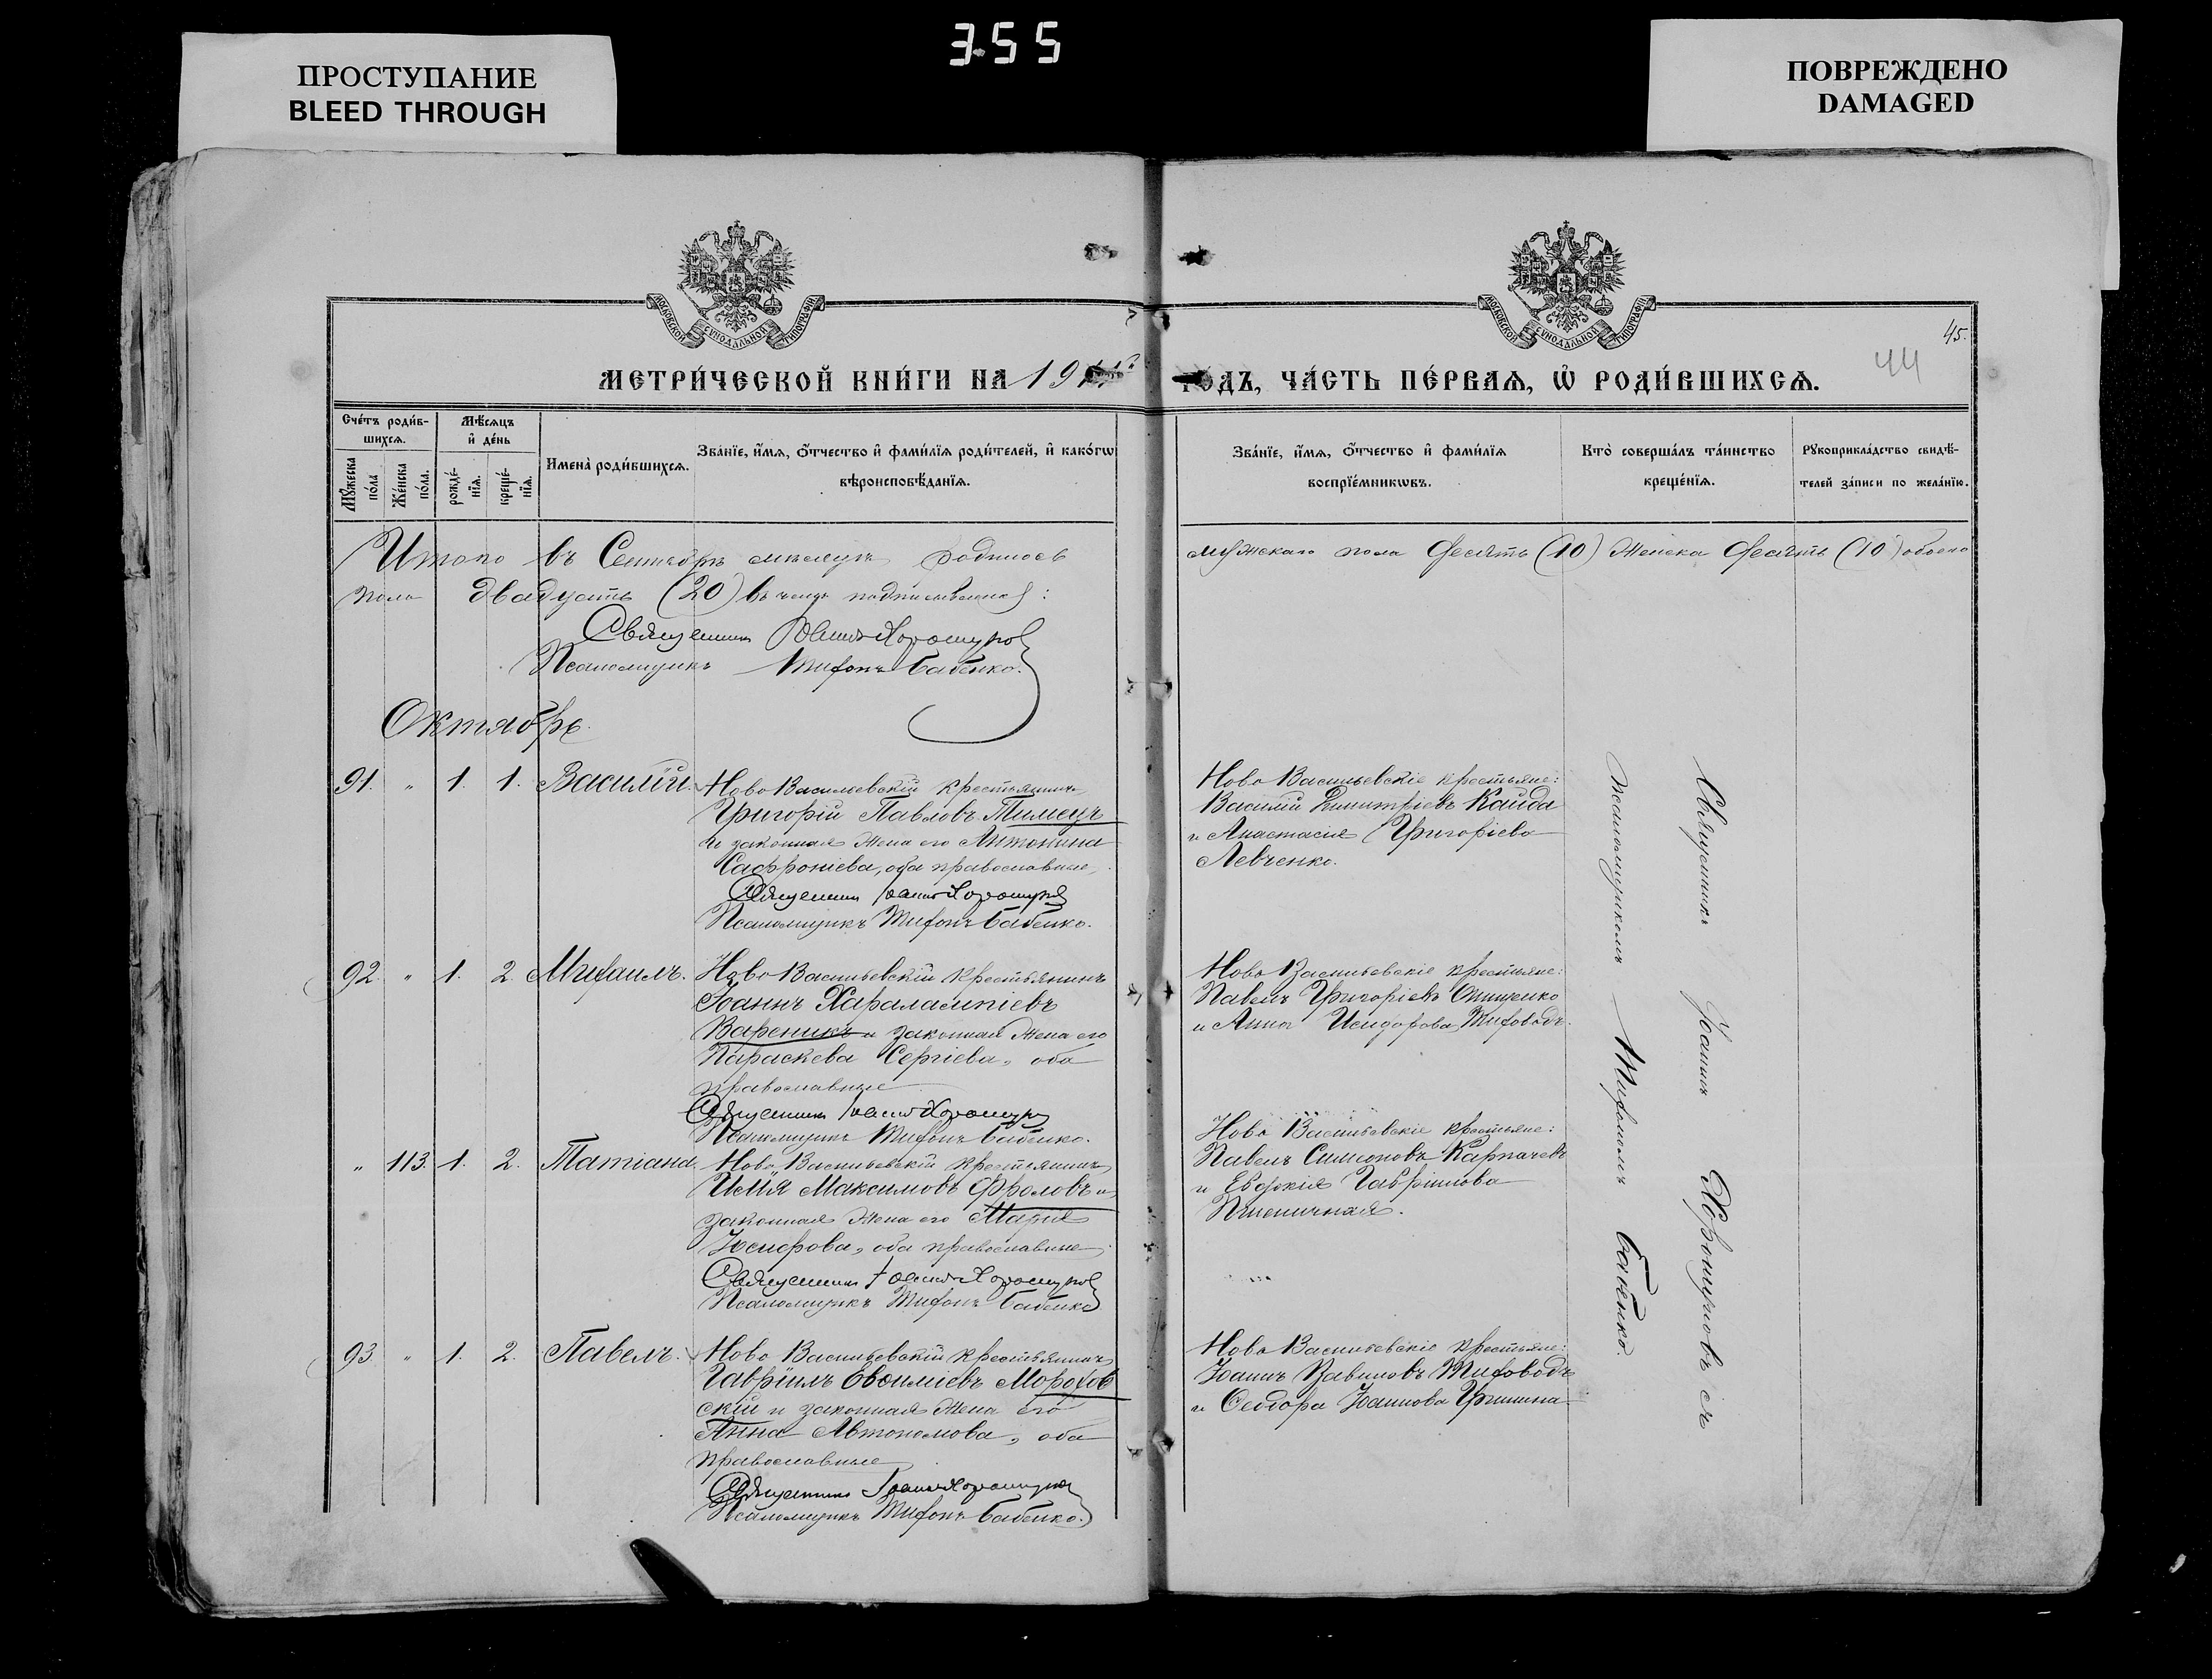 355
ПРОСТУПАНИЕ
BLEED THROUGH
ПОВРЕЖДЕНО
DAMAGED
МОСКОВСКОЙ СУНОДАЛЬНОЙ ТИПОГРАФІИ
МОСКОВСКОЙ СУНОДАЛЬНОЙ ТИПОГРАФІИ
45.
44
МЕТРИ́ЧЕСКОЙ КНИ́ГИ НА 191
ГОДЪ, ЧА́СТЬ ПЕ́РВАѦ, Ѡ҆ РОДИ́ВШИХСѦ.
Сче́тъ роди́в-
шихсѧ.
Мꙋжеска
по́ла
Же́нска
по́ла.
Мѣ́сѧцъ
и҆ де́нь
рожде́-
нїѧ.
креще́-
нїѧ.
Имена̀ роди́вшихсѧ.
Зва́нїе, и҆́мѧ, ѻ҆́тчество и҆ фами́лїѧ роди́телей, и҆ како́гѡ
вѣроисповѣ́данїѧ.
Зва́нїе, и҆́мѧ, ѻ҆́тчество и҆ фами́лїѧ
воспрїе́мникѡвъ.
Кто̀ соверша́лъ та́инство
креще́нїѧ.
Рꙋкоприкла́дство свидѣ́-
телей за́писи по жела́нїю.
Итого въ Сентябрѣ мѣсяцѣ родилось
мужскаго пола десять (10) женска десять (10) обоего
пола двадцать (20) въ чемъ подписываемся:
Священникъ Іоаннъ Хорошуновъ
Псаломщикъ Тихонъ Бабенко.
Октябрь.
91. " 1. 1. Василій. Ново Васильевскій крестьянинъ
Григорій Павловъ Тимецъ
и законная жена его Антонина
Сафроніева, оба православные,
Священникъ Іоаннъ Хорошуновъ
Псаломщикъ Тихонъ Бабенко.
Ново Васильевскіе крестьяне:
Василій Димитріевъ Кайда
и Анастасія Григоріева
Левченко.
92. " 1. 2. Михаилъ. Ново Васильевскій крестьянинъ
Іоаннъ Харалампіевъ
Вареникъ и законная жена его
Параскева Сергіева, оба
православные
Священникъ Іоаннъ Хорошуновъ
Псаломщикъ Тихонъ Бабенко.
Ново Васильевскіе крестьяне:
Павелъ Григоріевъ Онищенко
и Анна Исидорова Тиховодъ.
" 113. 1. 2. Татіана. Ново Васильевскій крестьянинъ
Илія Максимовъ Фроловъ и
законная жена его Марія
оба православные
Священникъ Іоаннъ Хорошуновъ
Псаломщикъ Тихонъ Бабенко
Ново Васильевскіе крестьяне:
Павелъ Симеоновъ Карпачевъ
и Евдокія Гавріилова
Пшеничная.
93 " 1. 2. Павелъ. Ново Васильевскій крестьянинъ
Гавріилъ Евѳиміевъ Морохов
скій и законная жена его
Анна Автономова, оба
православные
Священникъ Іоаннъ Хорошуновъ
Псаломщикъ Тихонъ Бабенко.
Ново Васильевскіе крестьяне:
Іоаннъ Вавиловъ Тиховодъ
и Ѳеодора Іоаннова Гришина
Священникъ Іоаннъ Хорошуновъ съ
псаломщикомъ Тихономъ Бабенко.